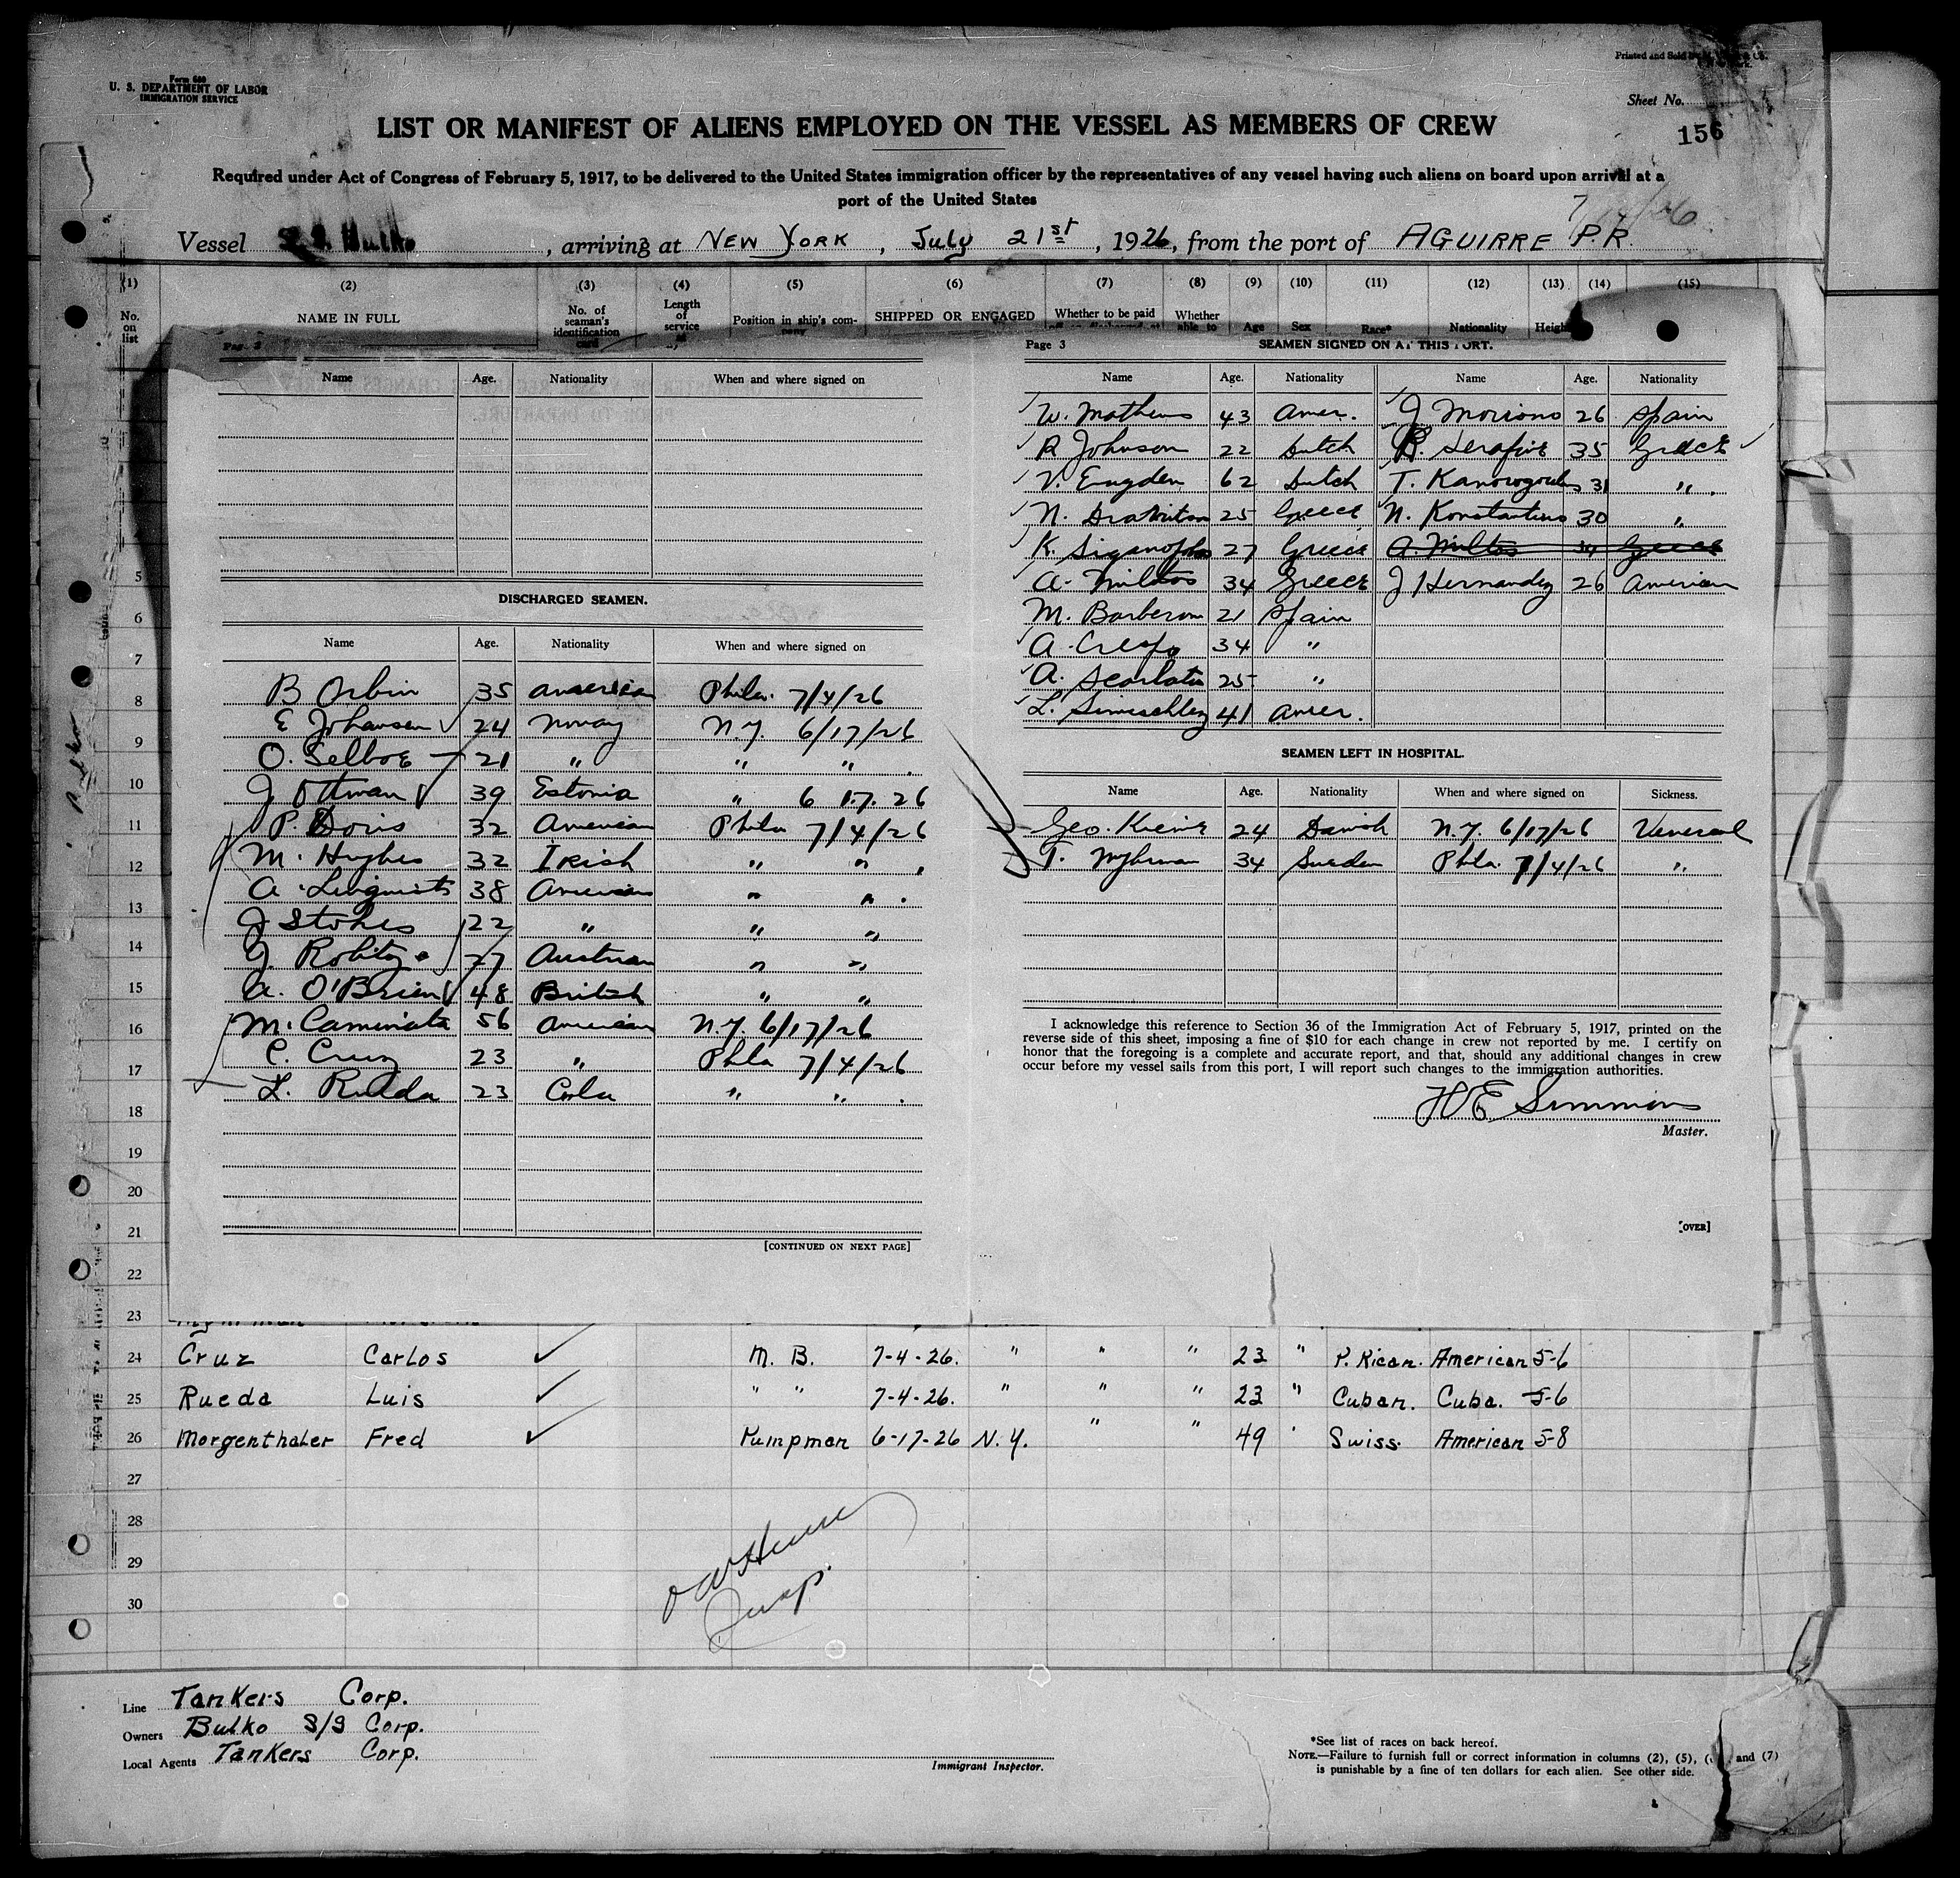 Form 680
U. S. DEPARTMENT OF LABOR
IMMIGRATION SERVICE
Printed and Sold by
Sheet No.
156
LIST OR MANIFEST OF ALIENS EMPLOYED ON THE VESSEL AS MEMBERS OF CREW
Required under Act of Congress of February 5, 1917, to be delivered to the United States immigration officer by the representatives of any vessel having such aliens on board upon arrival at a
port of the United States
Vessel S.S. Bulko, arriving at NEW YORK, July 21st, 1926, from the port of AGUIRRE P.R.
(1) (2) (3) (4) (5) (6) (7) (8) (9) (10) (11) (12) (13) (14) (15)
No. on list NAME IN FULL No. of seaman's identification card Length of service at Position in ship's com- SHIPPED OR ENGAGED Whether to be paid Whether able to Age Sex Race* Nationality Height
Page 2
Name Age. Nationality When and where signed on
DISCHARGED SEAMEN.
Name Age. Nationality When and where signed on
B Orbin 35 American Phila. 7/4/26
E Johansen 24 Norway N.Y. 6/17/26
O. Selboe 21 " " "
J Ottman 39 Estonia " 6 17. 26
P. Doris 32 American Phila 7/4/26
M. Hughes 32 Irish " "
A. Linquist 38 American " "
J Stokes 22 " " "
J. 27 Austrian " "
A. O'Brien 48 British " "
M. Caminata 56 American N.Y. 6/17/26
C. Cruz 23 " Phla 7/4/26
L. Rueda 23 Cuba " "
[CONTINUED ON NEXT PAGE]
Page 3 SEAMEN SIGNED ON AT THIS PORT.
Name Age. Nationality Name Age. Nationality
W. Mathews 43 Amer. J Moriono 26 Spain
R Johnson 22 Dutch Serafine 35 Greece
V. Engden 62 Dutch T. 31 "
N. 25 Greece N. Konstantinos 30 "
K. 27 Greece A. Miltos 34 Greece
A. Miltos 34 Greece J Hernandez 26 American
M. Barberon 21 Spain
A. Crespo 34 "
A. 25 "
L. 41 Amer.
SEAMEN LEFT IN HOSPITAL.
Name Age. Nationality When and where signed on Sickness.
Geo. 24 Danish N.Y. 6/17/26 Veneral
T. 34 Sweden Phla. 7/4/26 "
I acknowledge this reference to Section 36 of the Immigration Act of February 5, 1917, printed on the
reverse side of this sheet, imposing a fine of $10 for each change in crew not reported by me. I certify on
honor that the foregoing is a complete and accurate report, and that, should any additional changes in crew
occur before my vessel sails from this port, I will report such changes to the immigration authorities.
H E Simmons
Master.
[OVER]
5
6
7
8
9
10
11
12
13
14
15
16
17
18
19
20
21
22
23
24 Cruz Carlos M. B. 7-4-26. " " " 23 " P. Rican. American 5-6
25 Rueda Luis " " 7-4-26. " " " 23 " Cuban. Cuba. 5-6
26 Morgenthaler Fred Pumpman 6-17-26 N.Y. " " 49 " Swiss. American 5-8
27
28
29
30
Insp.
Line Tankers Corp.
Owners Bulko S/S Corp.
Local Agents Tankers Corp.
Immigrant Inspector.
*See list of races on back hereof.
NOTE.—Failure to furnish full or correct information in columns (2), (5), and (7)
is punishable by a fine of ten dollars for each alien. See other side.